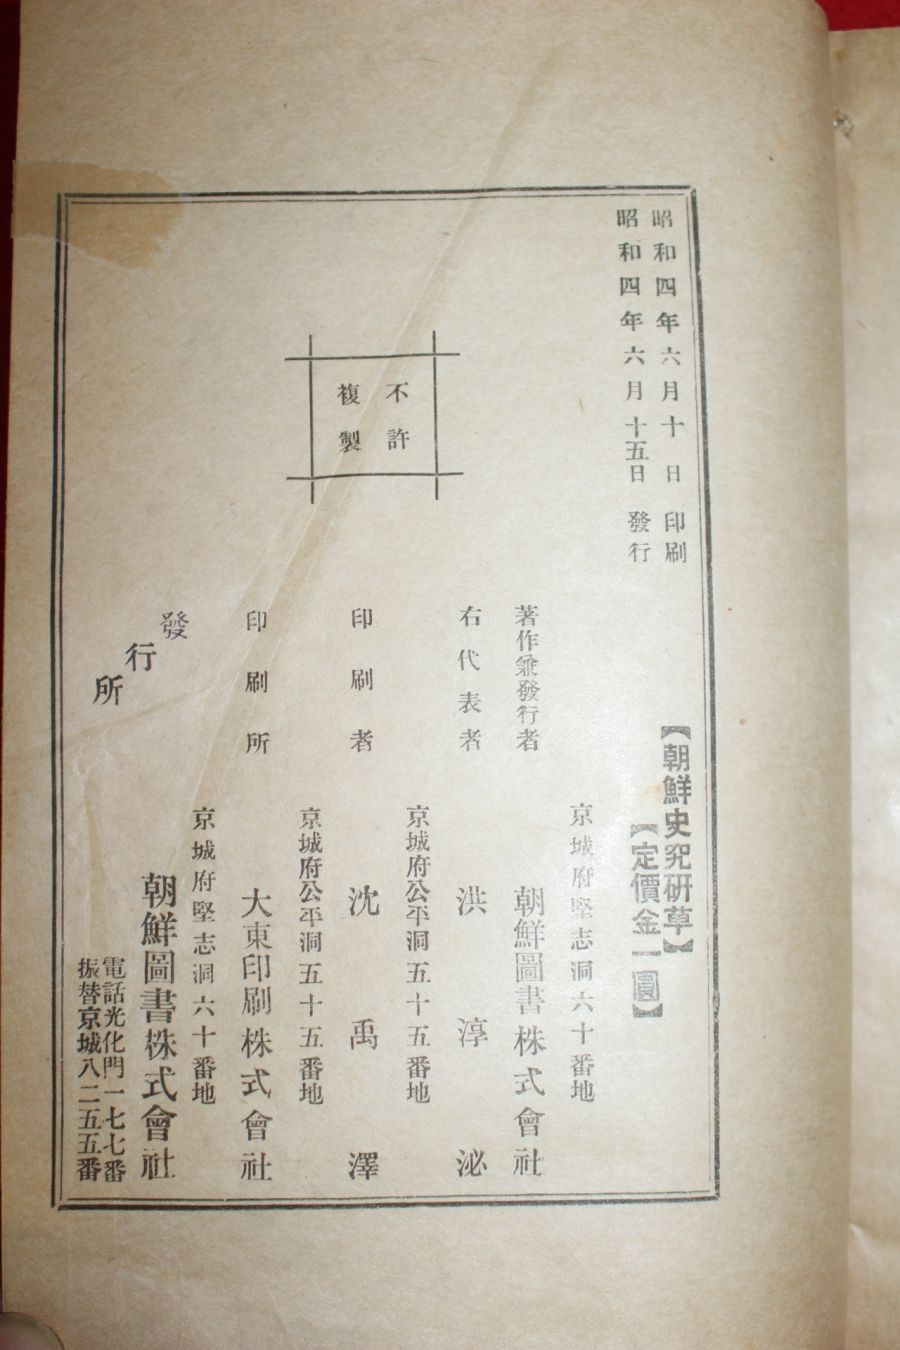 昭和四年六月十日 印刷
昭和四年六月十五日 發行
【朝鮮史究研草】
【定價金一圓】
不許
複製
京城府堅志洞六十番地
著作兼發行者 朝鮮圖書株式會社
右代表者 洪淳泌
京城府公平洞五十五番地
印刷者 沈禹澤
京城府公平洞五十五番地
印刷所 大東印刷株式會社
京城府堅志洞六十番地
發行所 朝鮮圖書株式會社
電話光化門一七七番
振替京城八二五五番